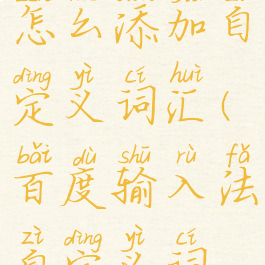 怎么添加自
dìng yì cí huì
定义词汇(
bǎi dù shū rù fǎ
百度输入法
zì dìng yì cí
自定义词